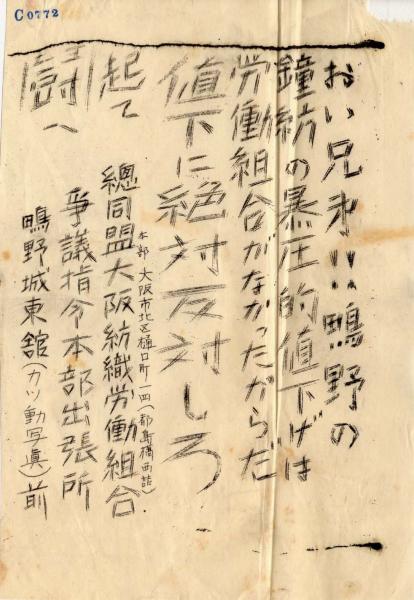 C0772
おい兄弟!! 鴨野の
鐘紡の暴圧的値下げは
労働組合がなかったからだ
値下に絶対反対しろ
起て
闘へ
總同盟大阪紡織労働組合
本部 大阪市北区樋口町一四(都島橋西詰)
爭議指令本部出張所
鴫野城東舘(カツ動写眞)前